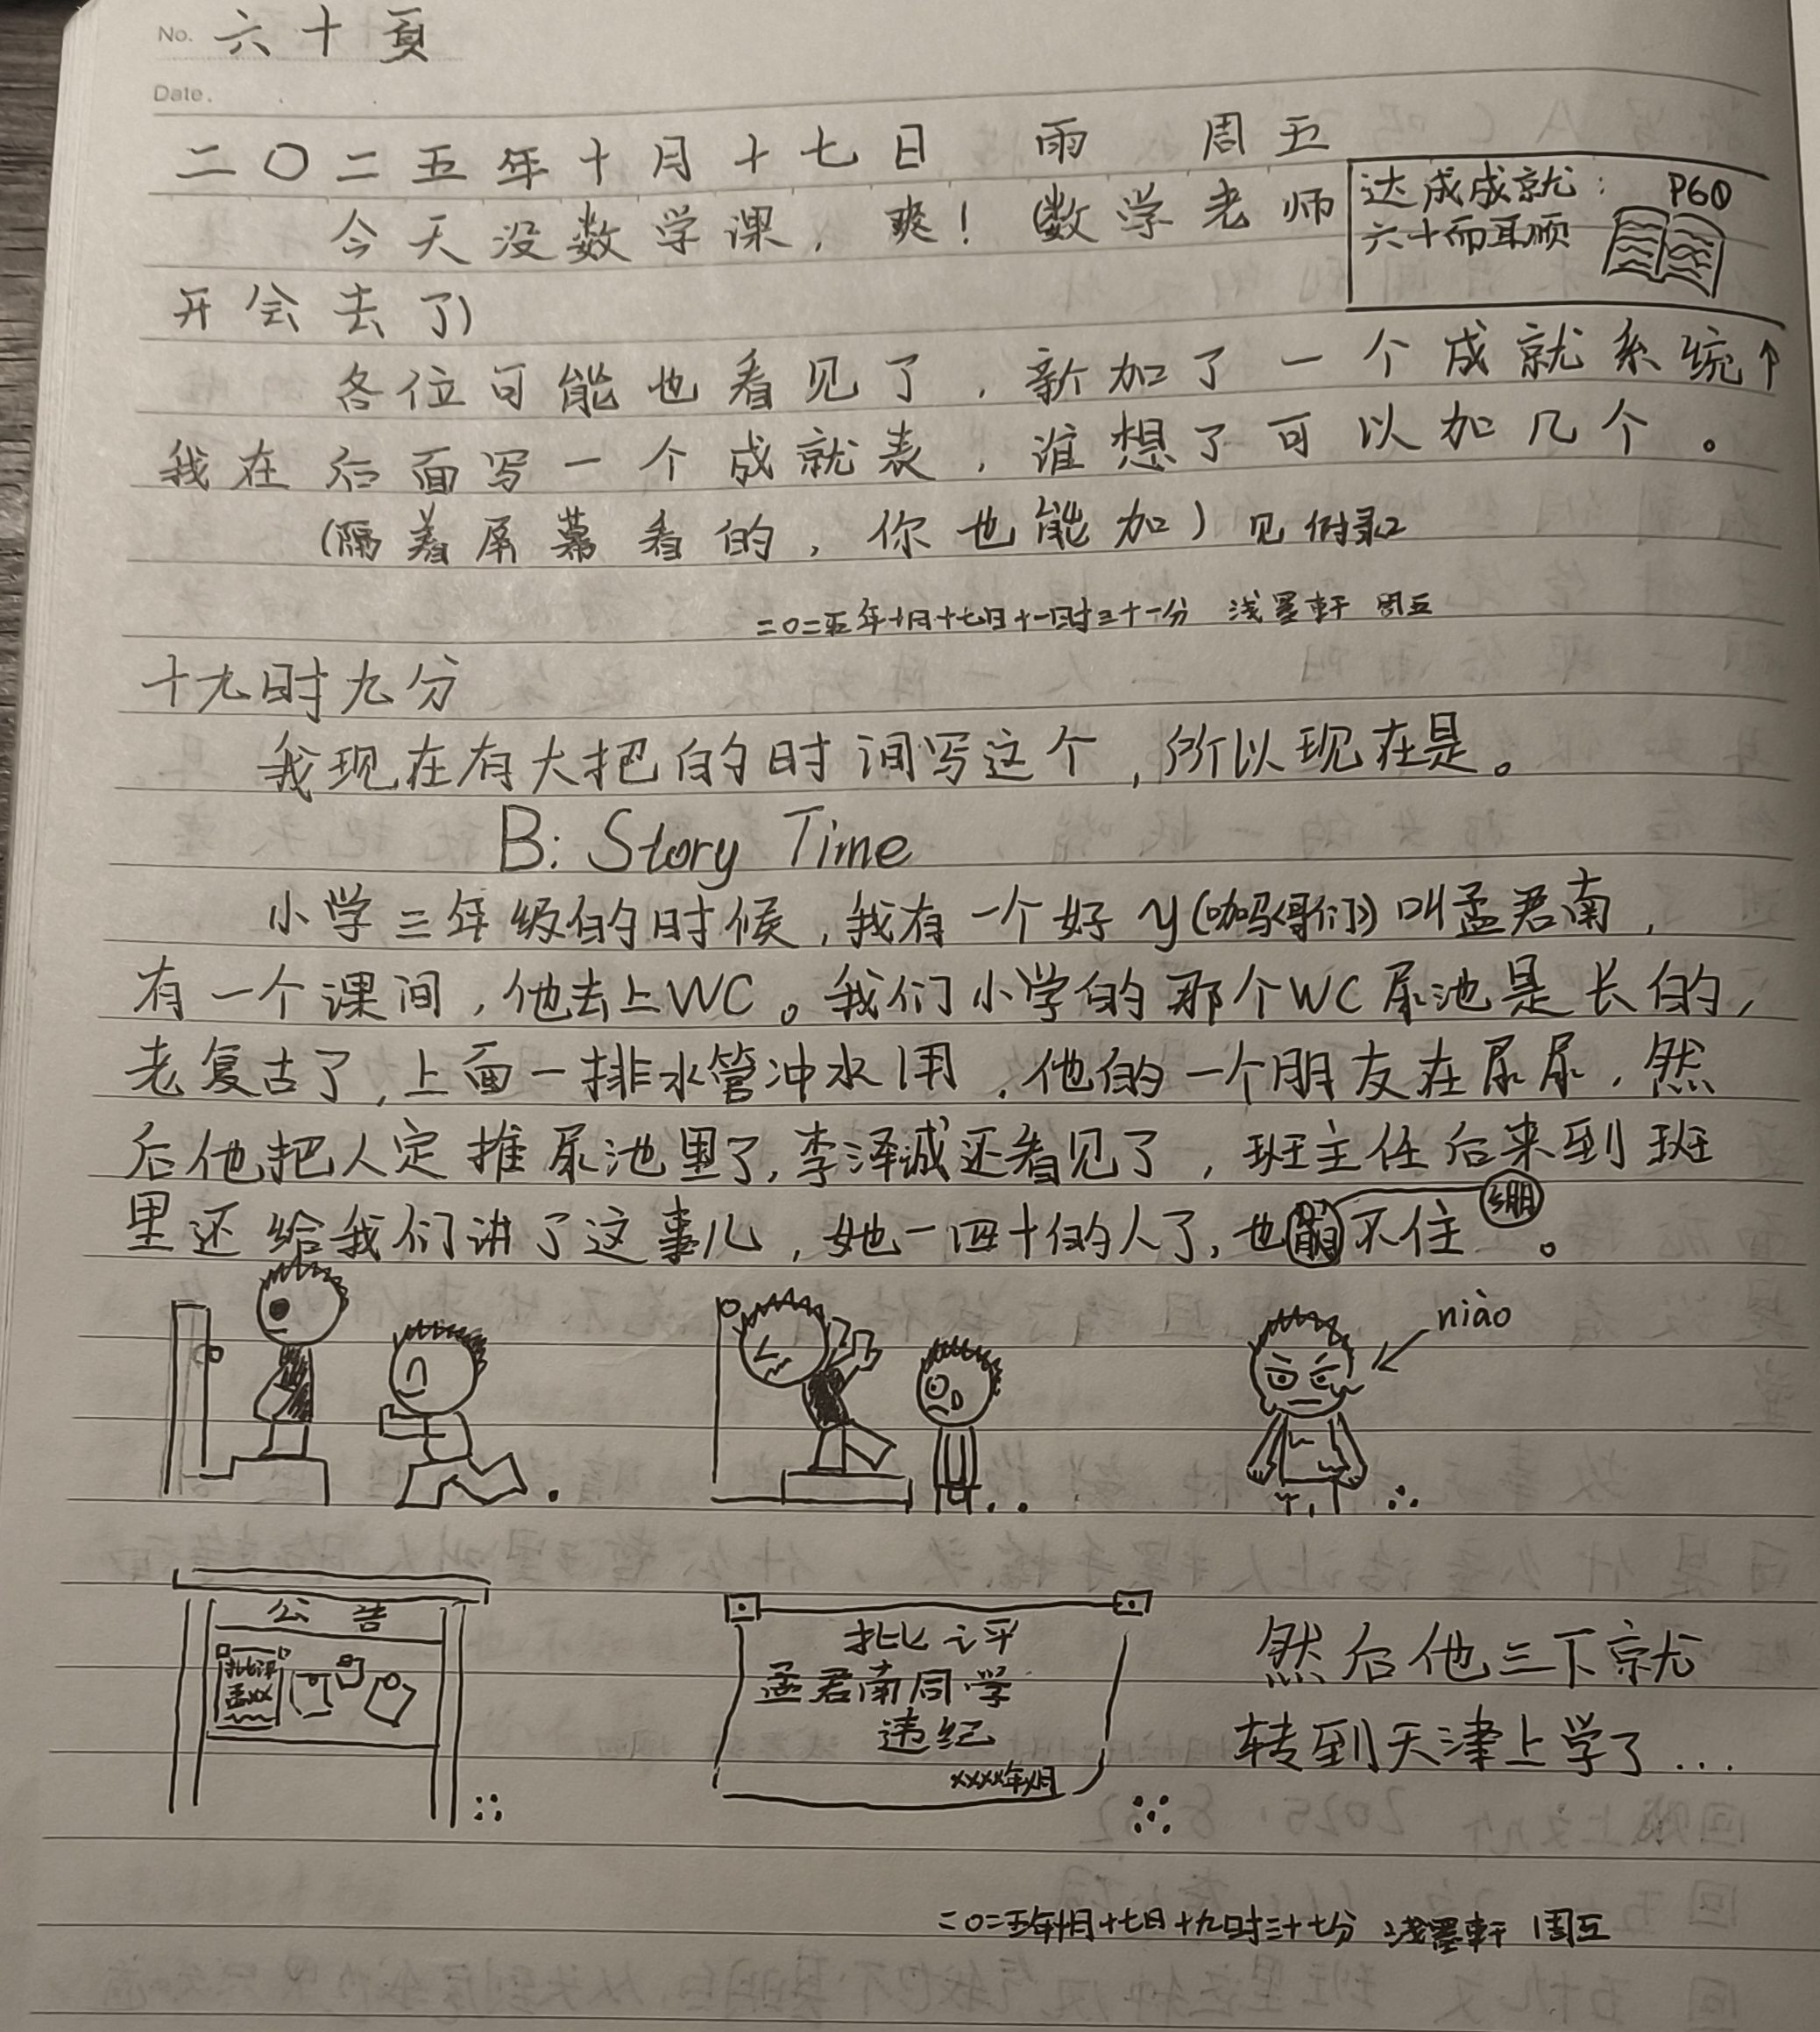 No. 六十頁
Date.
二〇二五年十月十七日 雨 周五
达成成就: P60
六十而耳顺
今天没数学课，爽！(数学老师
开会去了)
各位可能也看见了，新加了一个成就系统↑
我在后面写一个成就表，谁想了可以加几个。
(隔着屏幕看的，你也能加) 见附录2
二〇二五年十月十七日十一时三十一分 浅墨轩 周五
十九时九分
我现在有大把的时间写这个，所以现在是。
B: Story Time
小学三年级的时候，我有一个好y(哥们)叫孟君南，
有一个课间，他去上WC。我们小学的那个WC尿池是长的，
老复古了，上面一排水管冲水用，他的一个朋友在尿尿，然
后他把人定推尿池里了，李泽诚还看见了，班主任后来到班
里还给我们讲了这事儿，她一四十的人了，也不住 绷。
niào
公告
批评
孟XX
批评
孟君南同学
违纪
XXXX年X月
然后他三下就
转到天津上学了...
二〇二五年十月十七日十九时三十七分 浅墨轩 周五